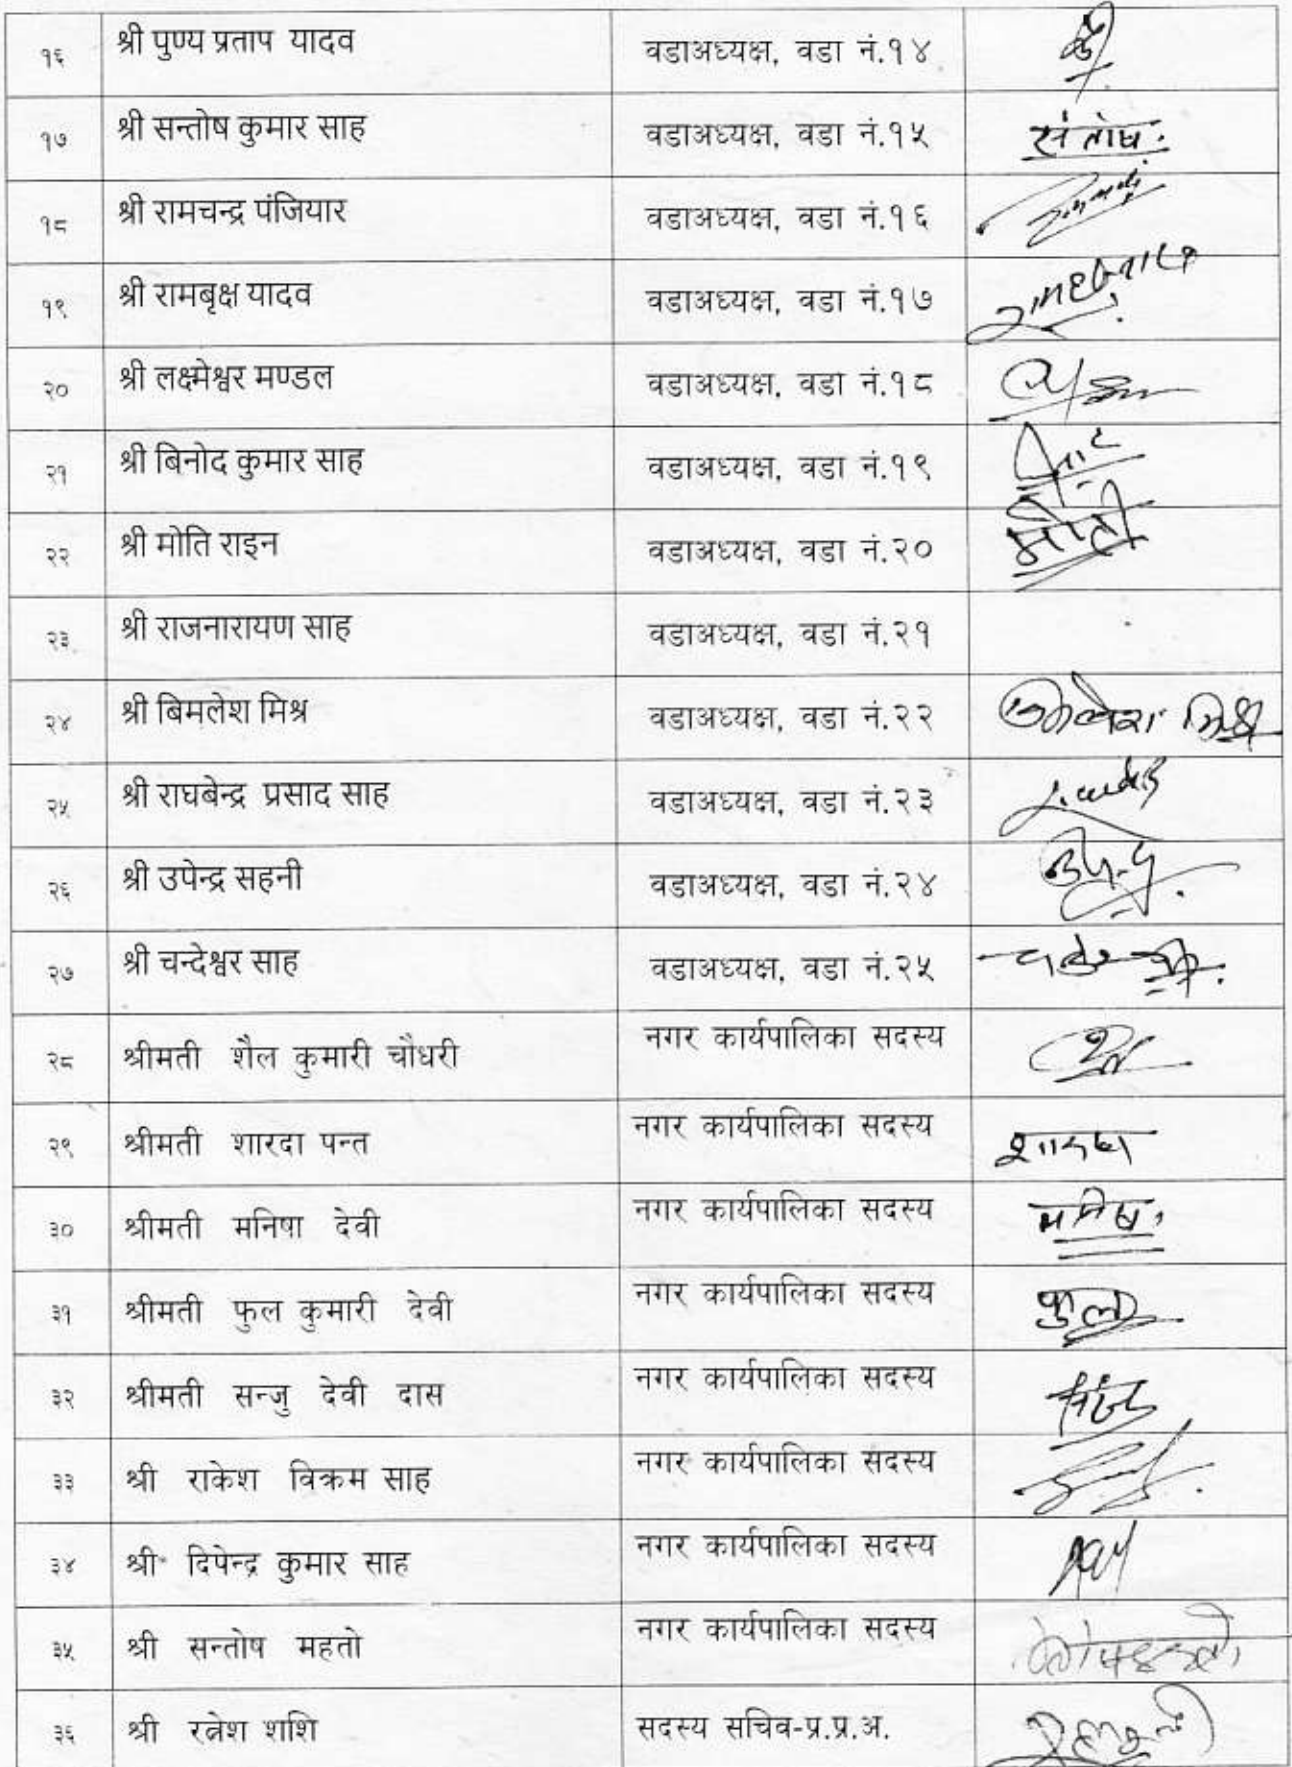 १६ श्री पुण्य प्रताप यादव वडाअध्यक्ष, वडा नं.१४
१७ श्री सन्तोष कुमार साह वडाअध्यक्ष, वडा नं.१५ संतोष
१८ श्री रामचन्द्र पंजियार वडाअध्यक्ष, वडा नं.१६
१९ श्री रामबृक्ष यादव वडाअध्यक्ष, वडा नं.१७
२० श्री लक्ष्मेश्वर मण्डल वडाअध्यक्ष, वडा नं.१८
२१ श्री बिनोद कुमार साह वडाअध्यक्ष, वडा नं.१९
२२ श्री मोति राइन वडाअध्यक्ष, वडा नं.२० मोती
२३ श्री राजनारायण साह वडाअध्यक्ष, वडा नं.२१
२४ श्री बिमलेश मिश्र वडाअध्यक्ष, वडा नं.२२
२५ श्री राघबेन्द्र प्रसाद साह वडाअध्यक्ष, वडा नं.२३
२६ श्री उपेन्द्र सहनी वडाअध्यक्ष, वडा नं.२४
२७ श्री चन्देश्वर साह वडाअध्यक्ष, वडा नं.२५
२८ श्रीमती शैल कुमारी चौधरी नगर कार्यपालिका सदस्य
२९ श्रीमती शारदा पन्त नगर कार्यपालिका सदस्य शारदा
३० श्रीमती मनिषा देवी नगर कार्यपालिका सदस्य
३१ श्रीमती फुल कुमारी देवी नगर कार्यपालिका सदस्य
३२ श्रीमती सन्जु देवी दास नगर कार्यपालिका सदस्य
३३ श्री राकेश विक्रम साह नगर कार्यपालिका सदस्य
३४ श्री दिपेन्द्र कुमार साह नगर कार्यपालिका सदस्य
३५ श्री सन्तोष महतो नगर कार्यपालिका सदस्य
३६ श्री रत्नेश शशि सदस्य सचिव-प्र.प्र.अ.